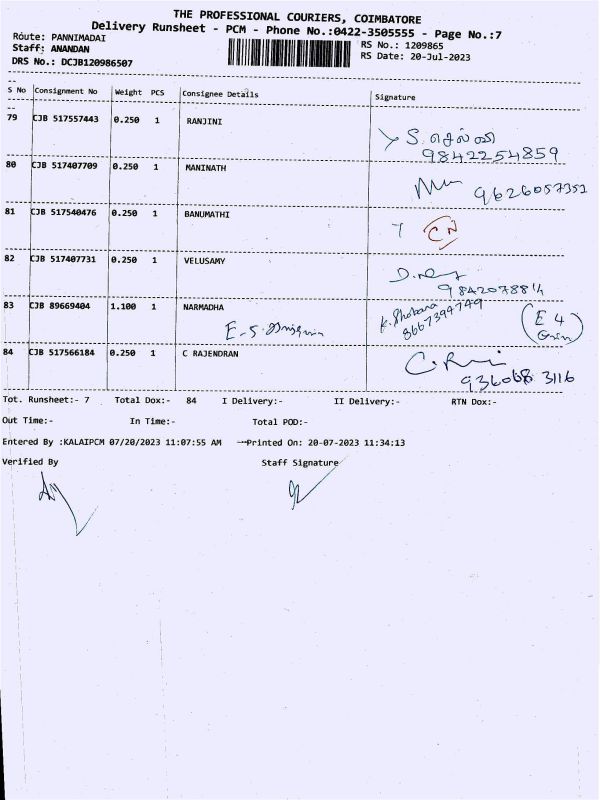 THE PROFESSIONAL COURIERS, COIMBATORE
Delivery Runsheet - PCM - Phone No.:0422-3505555 - Page No.:7
Route: PANNIMADAI
RS No.: 1209865
Staff: ANANDAN
RS Date: 20-Jul-2023
DRS No.: DCJB120986507
S No Consignment No Weight PCS Consignee Details Signature
79 CJB 517557443 0.250 1 RANJINI
S. செல்வி
9842254859
80 CJB 517407709 0.250 1 MANINATH
9626057352
81 CJB 517540476 0.250 1 BANUMATHI
CN
82 CJB 517407731 0.250 1 VELUSAMY
83 CJB 89669404 1.100 1 NARMADHA
K. Shobana
8667394749
E 4
84 CJB 517566184 0.250 1 C RAJENDRAN
936068 3116
Tot. Runsheet:- 7 Total Dox:- 84 I Delivery:- II Delivery:- RTN Dox:-
Out Time:- In Time:- Total POD:-
Entered By :KALAIPCM 07/20/2023 11:07:55 AM Printed On: 20-07-2023 11:34:13
Verified By Staff Signature